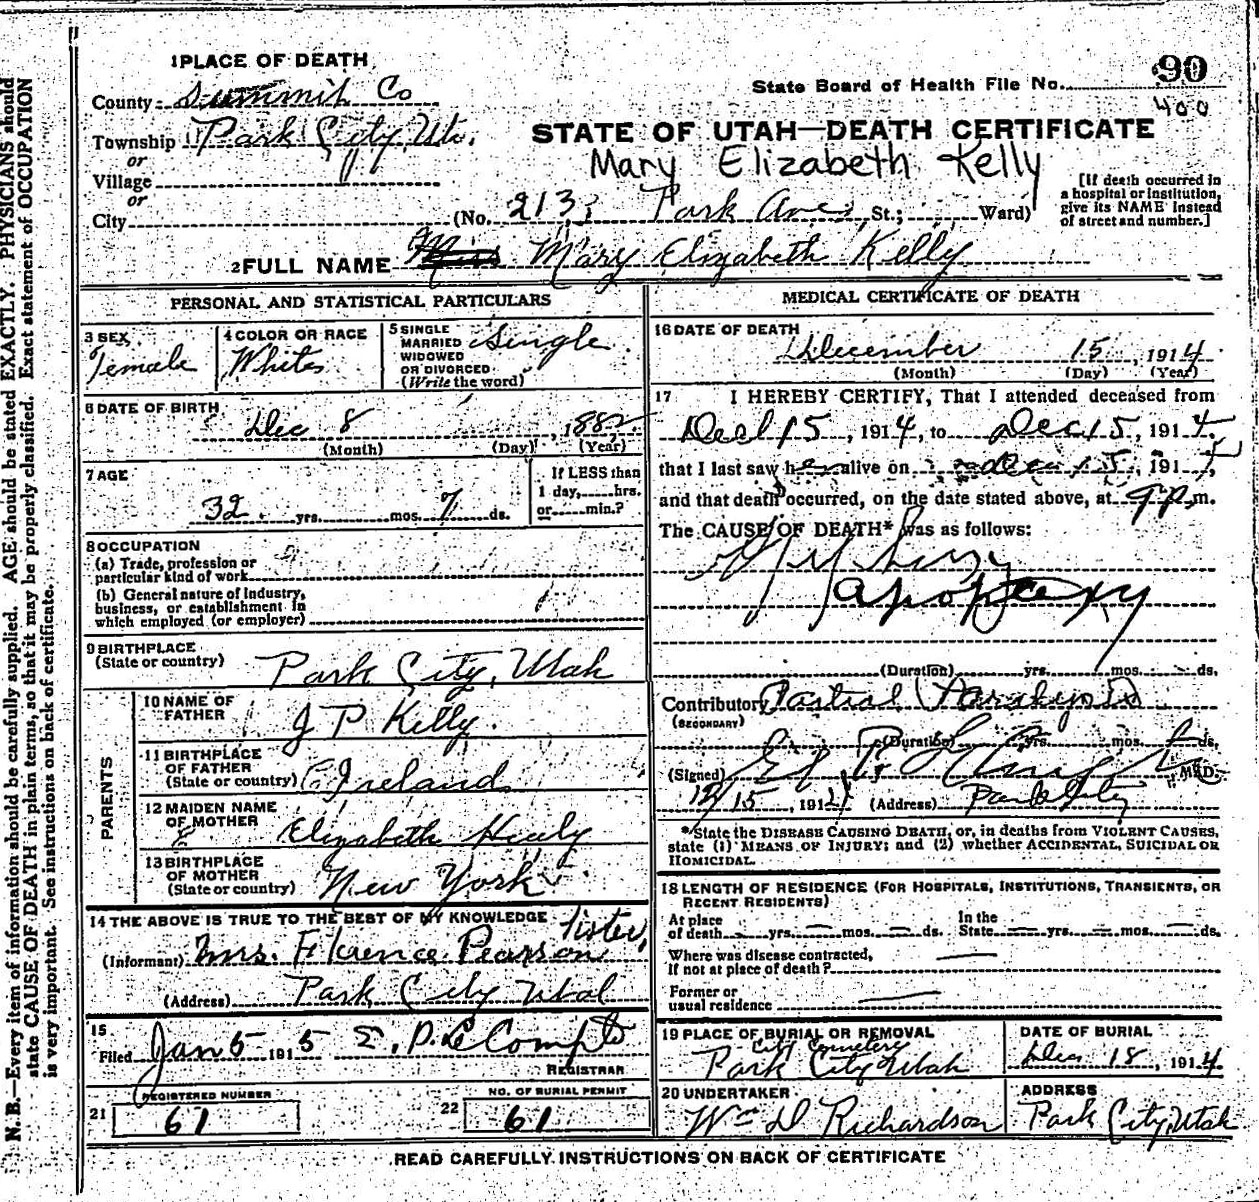 N. B.—Every item of information should be carefully supplied. AGE should be stated EXACTLY. PHYSICIANS should
state CAUSE OF DEATH in plain terms, so that it may be properly classified. Exact statement of OCCUPATION
is very important. See instructions on back of certificate.
1 PLACE OF DEATH
County Summit Co
Township Park City, Ut.
or
Village
or
City
State Board of Health File No. 90
400
STATE OF UTAH—DEATH CERTIFICATE
Mary Elizabeth Kelly
(No. 213 Park Ave St.; Ward)
[If death occurred in
a hospital or institution,
give its NAME instead
of street and number.]
2 FULL NAME Miss Mary Elizabeth Kelly
PERSONAL AND STATISTICAL PARTICULARS
3 SEX
Female
4 COLOR OR RACE
White
5 SINGLE
MARRIED
WIDOWED
OR DIVORCED
(Write the word)
Single
6 DATE OF BIRTH
Dec 8, 1882
(Month) (Day) (Year)
7 AGE
32 yrs. mos. 7 ds.
If LESS than
1 day, hrs.
or min.?
8 OCCUPATION
(a) Trade, profession or
particular kind of work
(b) General nature of industry,
business, or establishment in
which employed (or employer)
9 BIRTHPLACE
(State or country) Park City, Utah
PARENTS
10 NAME OF
FATHER J P Kelly
11 BIRTHPLACE
OF FATHER
(State or country) Ireland
12 MAIDEN NAME
OF MOTHER Elizabeth Healy
13 BIRTHPLACE
OF MOTHER
(State or country) New York
14 THE ABOVE IS TRUE TO THE BEST OF MY KNOWLEDGE
(Informant) Mrs. Florence Pearson Sister,
(Address) Park City Utah
15
Filed Jan 5 1915 E. D. LeCompte
REGISTRAR
21 REGISTERED NUMBER
61
22 NO. OF BURIAL PERMIT
61
MEDICAL CERTIFICATE OF DEATH
16 DATE OF DEATH
December 15, 1914
(Month) (Day) (Year)
17 I HEREBY CERTIFY, That I attended deceased from
Dec 15, 1914, to Dec 15, 1914
that I last saw her alive on Dec 15, 1914
and that death occurred, on the date stated above, at 9 p.m.
The CAUSE OF DEATH* was as follows:
apoplexy
(Duration) yrs. mos. ds.
Contributory Partial Paralysis
(SECONDARY)
(Duration) yrs. mos. ds.
(Signed) M.D.
12/15, 1914 (Address) Park City
*State the DISEASE CAUSING DEATH, or, in deaths from VIOLENT CAUSES,
state (1) MEANS OF INJURY; and (2) whether ACCIDENTAL, SUICIDAL OR
HOMICIDAL.
18 LENGTH OF RESIDENCE (FOR HOSPITALS, INSTITUTIONS, TRANSIENTS, OR
RECENT RESIDENTS)
At place
of death yrs. mos. ds.
In the
State yrs. mos. ds.
Where was disease contracted,
if not at place of death?
Former or
usual residence
19 PLACE OF BURIAL OR REMOVAL
City Cemetery
Park City Utah
DATE OF BURIAL
Dec 18, 1914
20 UNDERTAKER
Wm D Richardson
ADDRESS
Park City, Utah
READ CAREFULLY INSTRUCTIONS ON BACK OF CERTIFICATE